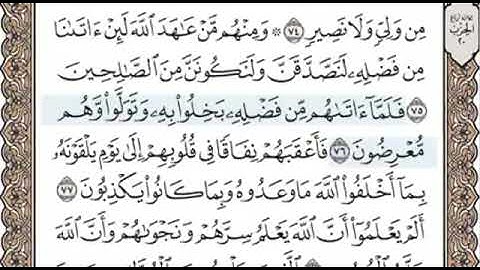 مِن وَلِيٍّ وَلَا نَصِيرٍ ٧٤ ۞ وَمِنْهُم مَّنْ عَـٰهَدَ ٱللَّهَ لَئِنْ ءَاتَىٰنَا
مِن فَضْلِهِۦ لَنَصَّدَّقَنَّ وَلَنَكُونَنَّ مِنَ ٱلصَّـٰلِحِينَ
٧٥ فَلَمَّآ ءَاتَىٰهُم مِّن فَضْلِهِۦ بَخِلُوا۟ بِهِۦ وَتَوَلَّوا۟ وَّهُم
مُّعْرِضُونَ ٧٦ فَأَعْقَبَهُمْ نِفَاقًا فِى قُلُوبِهِمْ إِلَىٰ يَوْمِ يَلْقَوْنَهُۥ
بِمَآ أَخْلَفُوا۟ ٱللَّهَ مَا وَعَدُوهُ وَبِمَا كَانُوا۟ يَكْذِبُونَ ٧٧
أَلَمْ يَعْلَمُوٓا۟ أَنَّ ٱللَّهَ يَعْلَمُ سِرَّهُمْ وَنَجْوَىٰهُمْ وَأَنَّ ٱللَّهَ